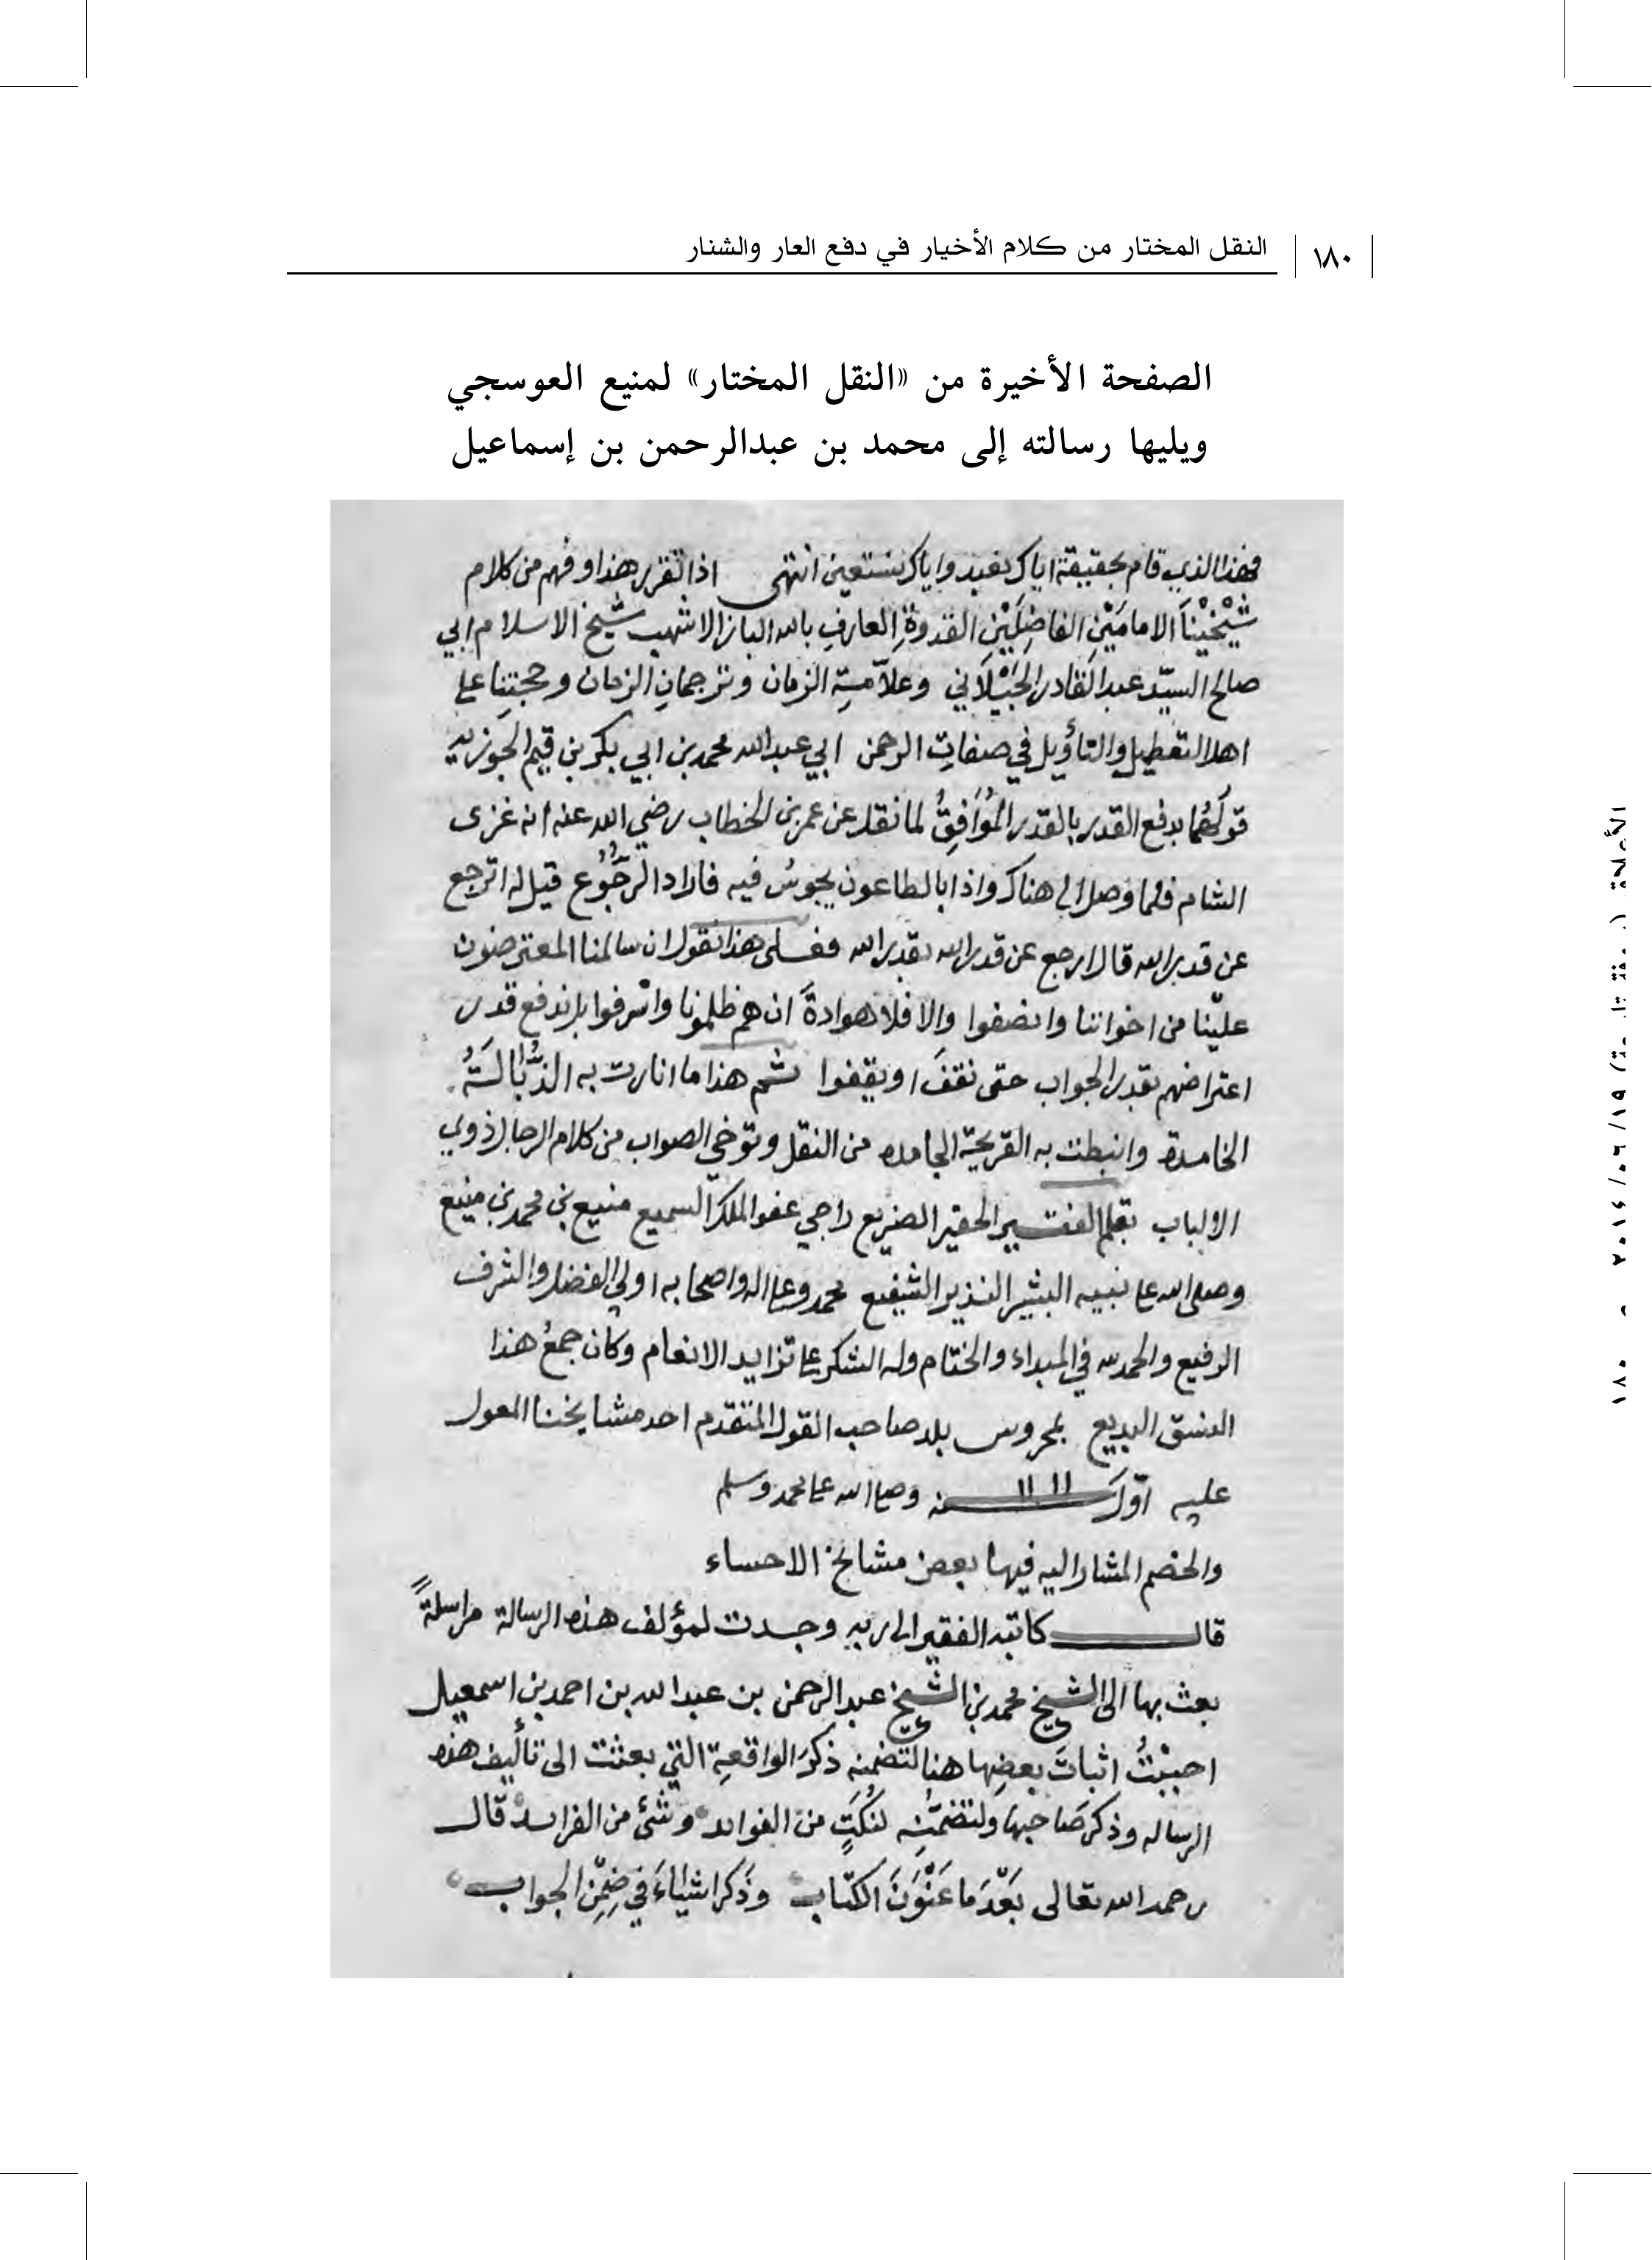 ١٨٠ النقل المختار من كلام الأخيار في دفع العار والشنار
الصفحة الأخيرة من «النقل المختار» لمنيع العوسجي
ويليها رسالته إلى محمد بن عبدالرحمن بن إسماعيل
فهذا الذي قام بحقيقة اياك نعبد واياك نستعين انتهى اذا تقرر هذا وفهم من كلام
شَيْخَيْنَا الامامَيْنِ الفاضِلَيْنِ القدوةِ العارفِ بالله الباز الاشهب شيخ الاسلام ابي
صالح السيّد عبد القادر الجَيْلَاني وعلاّمةِ الزمان وترجمانِ الزمان وحجتِنا على
اهل التعطيل والتأويل في صفات الرحمن ابي عبد الله محمد بن ابي بكر بن قيم الجوزيه
قولَهُما بدفع القدر بالقدر المُوَافِقُ لما نقل عن عمر بن الخطاب رضي الله عنه انه غزى
الشام فلما وصل الى هناك واذا بالطاعون يجوسُ فيه فاراد الرجُوُع قيل له اترجع
عن قدر الله قال ارجع عن قدر الله بقدر الله فعلى هذا نقول ان سالمنا المعترضون
علينا من اخواننا وانصفوا والا فلا هوادةً ان هم ظلمونا واسرفوا بل ندفع قدر
اعتراضهم بقدر الجواب حتى نقفَ او يقفوا ثم هذا ما انارت به الذُّبَالَةُ
الخامدة وانبطت به القريحة الجامده من النقل وتوخي الصواب من كلام الرجال ذوي
الالباب بقلم الفقير الحقير الضريع راجي عفو الملك السميع منيع بن محمد بن منيع
وصلى الله على نبيه البشير النذير الشفيع محمد وعلى اله واصحابه اولي الفضل والشرف
الرفيع والحمد لله في المبداء والختام وله الشكر على تزايد الانعام وكان جمعُ هذا
النسق البديع بمحروس بلد صاحب القول المتقدم احد مشايخنا المعول
عليه اوّلَ سنه وصلى الله على محمد وسلم
والخصم المشار اليه فيها بعض مشائخ الاحساء
قال كاتبه الفقير الى ربه وجدت لمؤلف هذه الرسالة مراسلةً
بعث بها الى الشيخ محمد بن الشيخ عبد الرحمن بن عبد الله بن احمد بن اسمعيل
احببْتُ اثباتَ بعضِها هنا لتضمنه ذكرَ الواقعةِ التي بعثت الى تأليف هذه
الرساله وذكر صَاحبها ولتضمُّنِه لنُكَتٍ من الفوائد وشئ من الفرائد قال
رحمه الله تعالى بَعْدَ ما عَنْوَنَ الكتاب وذَكَر اشياءَ في ضِمْنِ الجواب